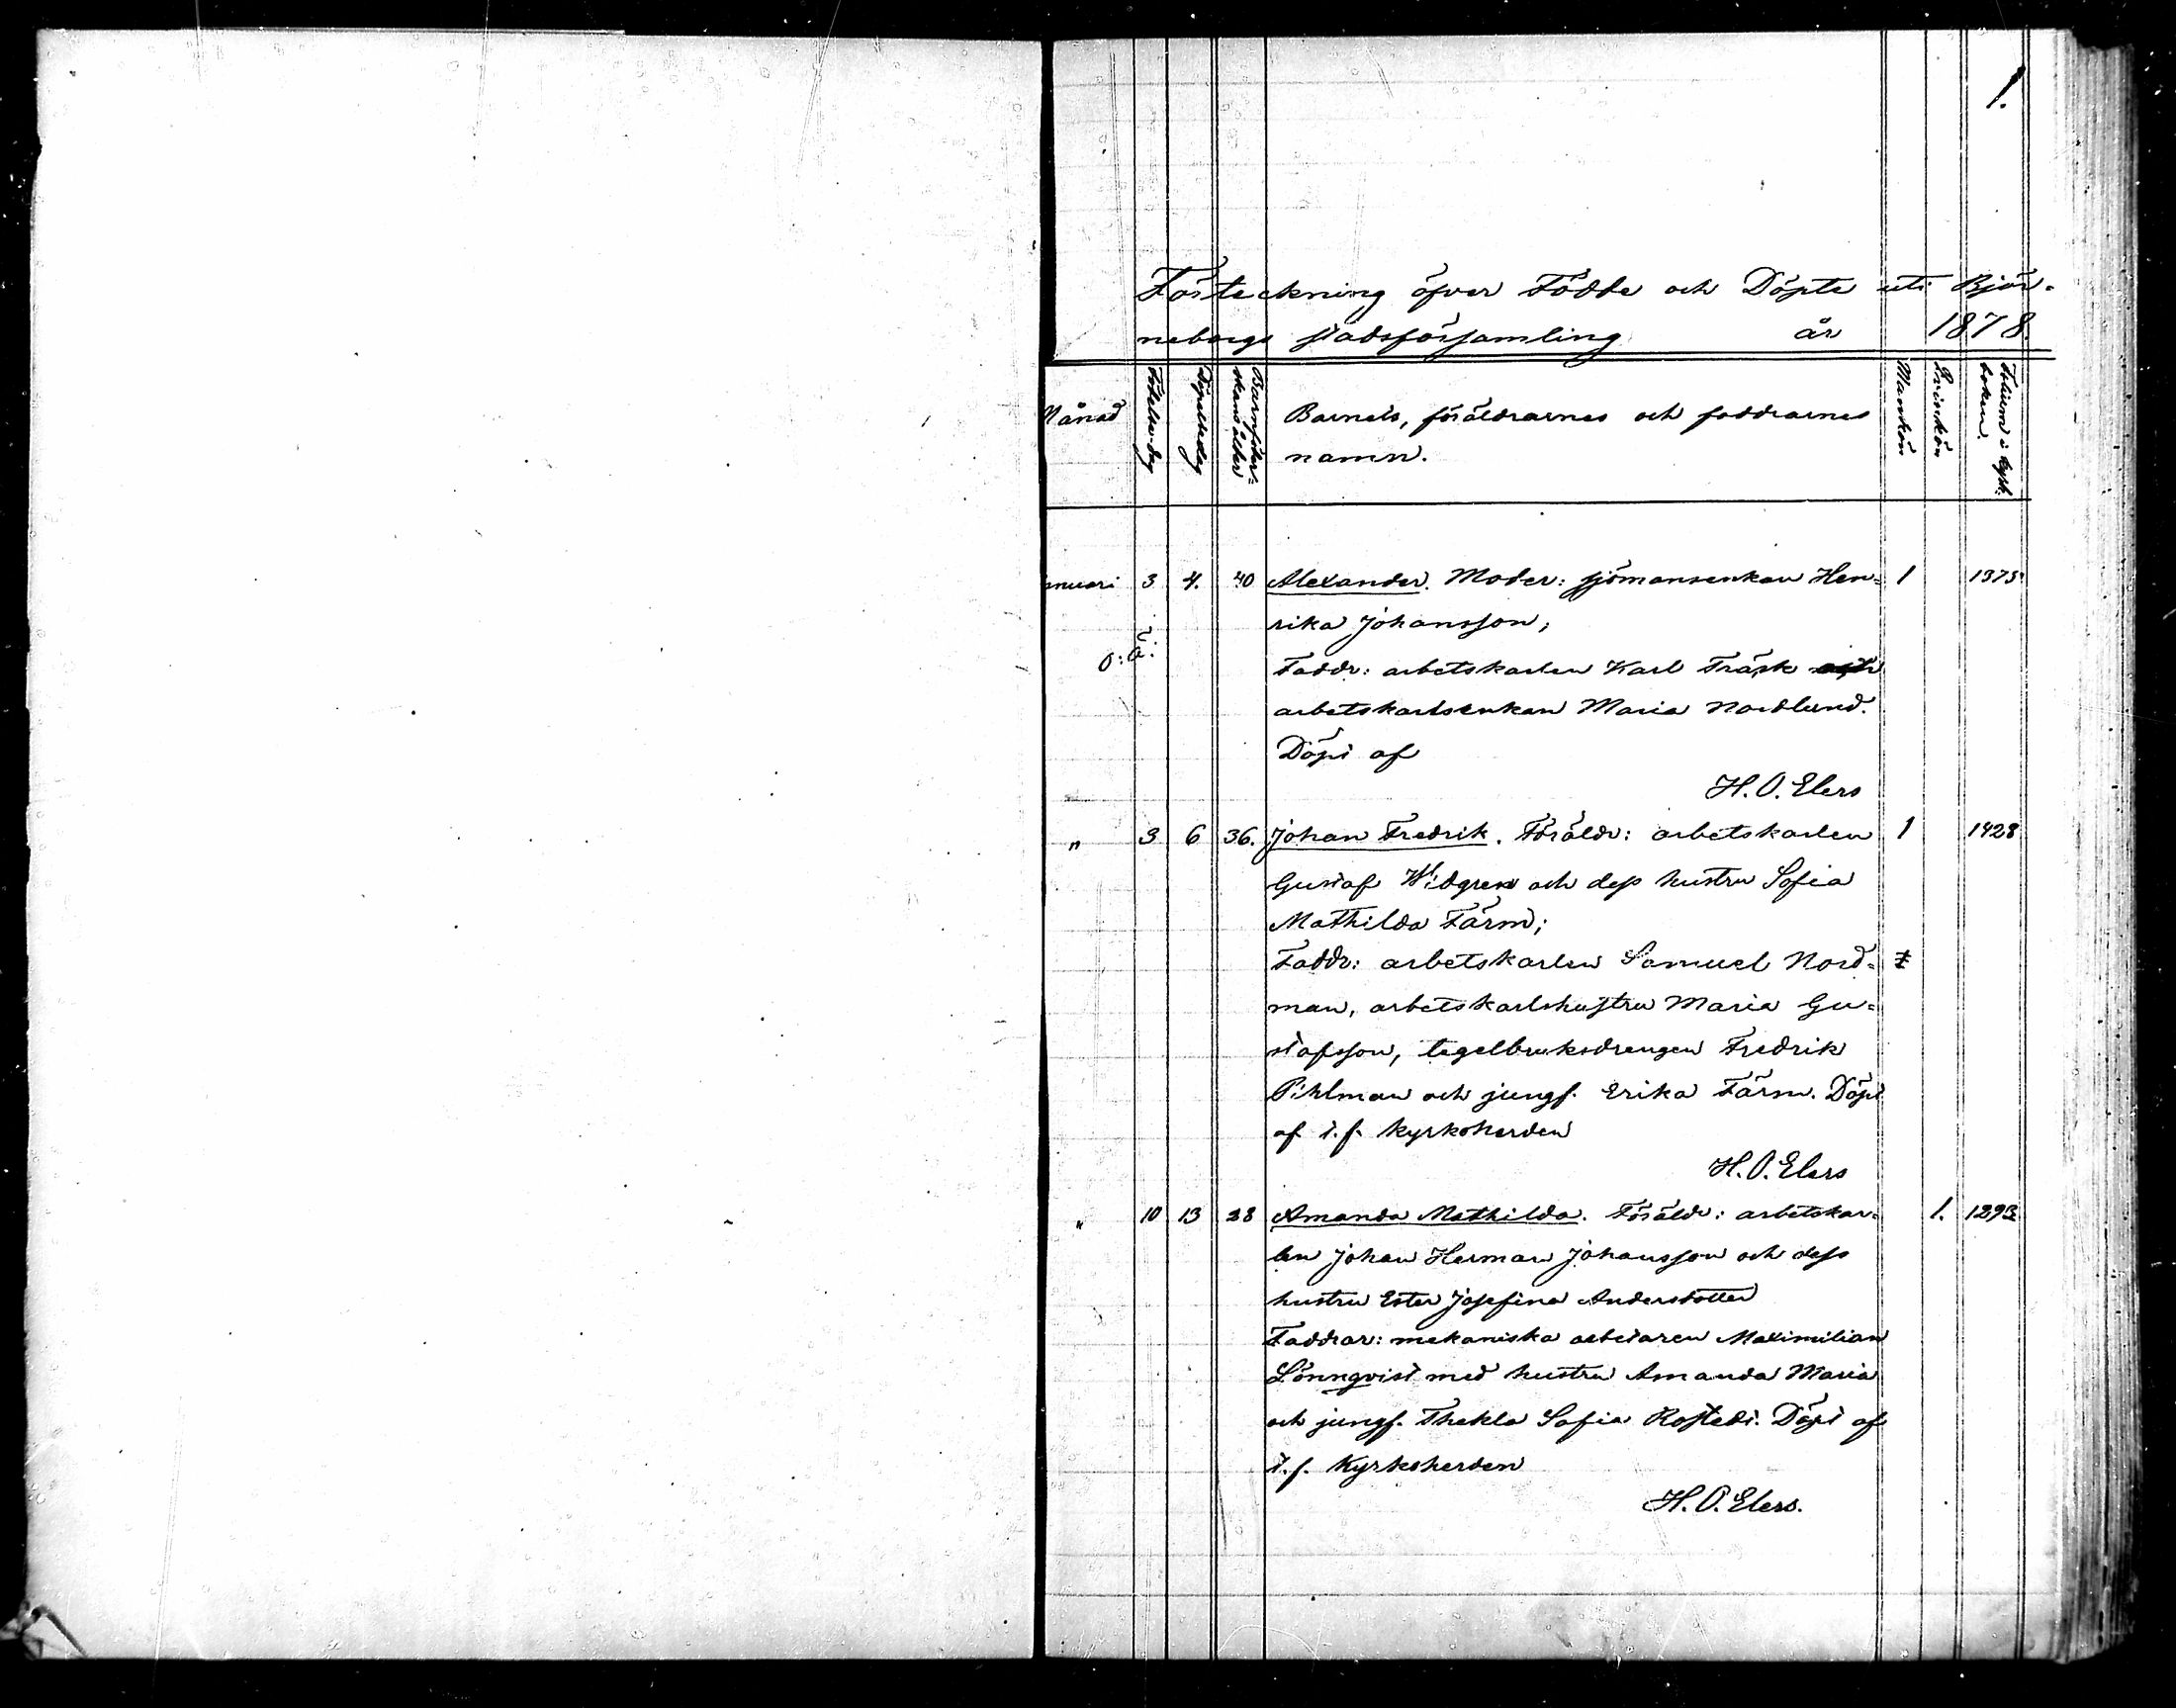 1.
Förteckning öfver Födde och Döpte uti Björ-
neborgs stadsförsamling år 1878.
Månad Födelsedag Döpelsedag Barnföder=skans ålder Barnets, föräldrarnes och faddrarnes Mankön Qvinkön Folium i kyrk.boken.
namn.
anuari 3 4. 40 Alexander. Moder: sjömansenkan Hen= 1 1375
rika Johansson;
o:ä:
Faddr: arbetskarlen Karl Träsk och
arbetskarlsenkan Maria Nordlund.
Döpt af
H. O. Elers
" 3 6 36. Johan Fredrik. Föräldr: arbetskarlen 1 1428
Gustaf Widgren och dess hustru Sofia
Mathilda Färm;
Faddr: arbetskarlen Samuel Nord=
man, arbetskarlshustru Maria Gu=
stafsson, tegelbruksdrengen Fredrik
Pihlman och jungf. Erika Färm. Döpt
af t.f. kyrkoherden
H. O. Elers
" 10 13 28 Amanda Mathilda. Föräldr: arbetskar= 1. 1293
len Johan Herman Johansson och dess
hustru Ester Josefina Andersdotter
Faddrar: mekaniska arbetaren Maximilian
Lönnqvist med hustru Amanda Maria
och jungf. Thekla Sofia Rostedt. Döpt af
t.f. Kyrkoherden
H. O. Elers.